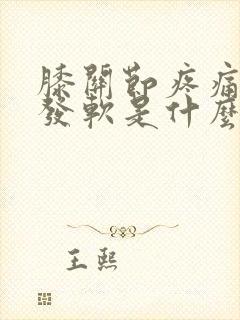 膝關節疼痛
發軟是什麼
王熙